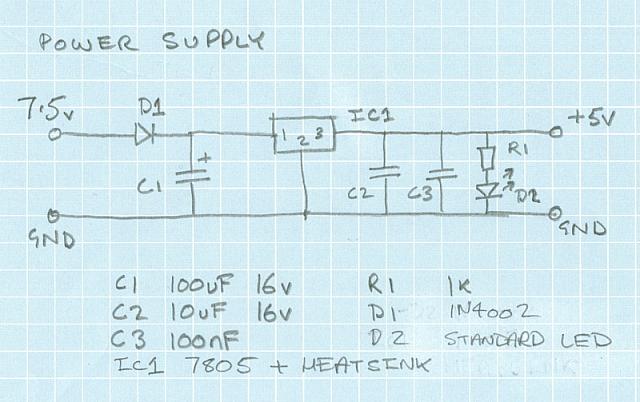 POWER SUPPLY
7.5v D1 IC1 +5v
1 2 3
+
C1 C2 C3 R1
D2
GND GND
C1 100uF 16v R1 1K
C2 10uF 16v D1 1N4002
C3 100nF D2 STANDARD LED
IC1 7805 + HEATSINK